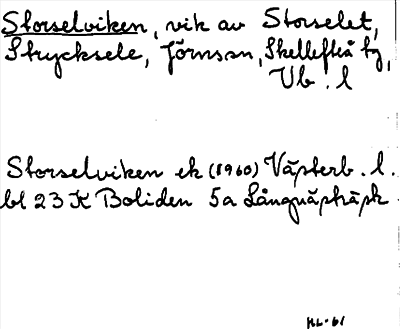 Storselviken, vik av Storselet,
Strycksele, Jörnssn, Skellefteå tg,
Vb. l
Storselviken ek (1960) Västerb. l.
bl 23 K Boliden 5a Långnästräsk